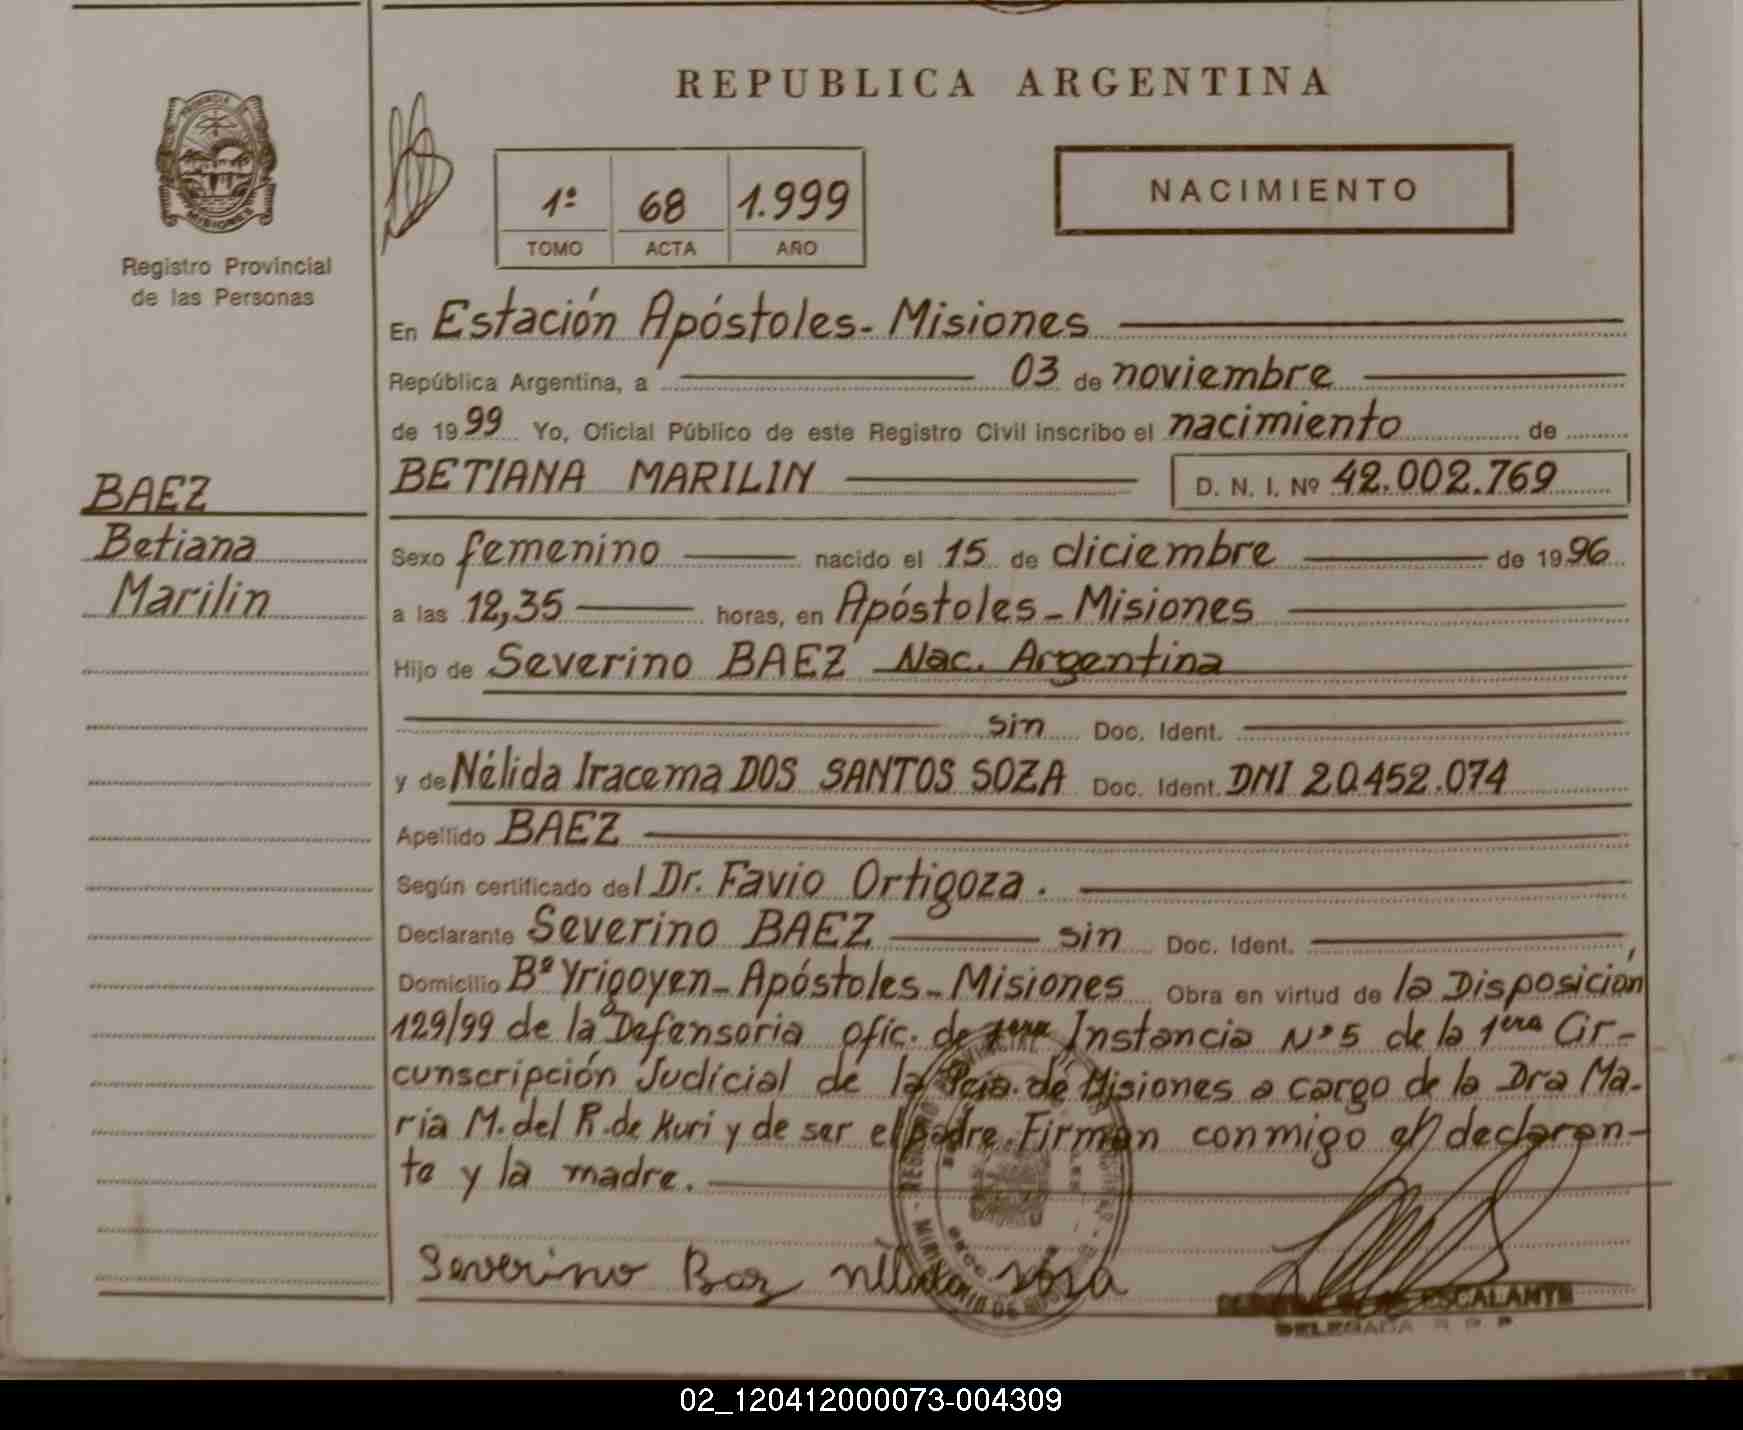 REPUBLICA ARGENTINA
NACIMIENTO
1º 68 1.999
TOMO ACTA AÑO
PROVINCIA
MISIONES
Registro Provincial
de las Personas
BAEZ
Betiana
Marilin
En Estación Apóstoles - Misiones
República Argentina, a 03 de noviembre
de 1999 Yo, Oficial Público de este Registro Civil inscribo el nacimiento de
BETIANA MARILIN D. N. I. Nº 42.002.769
Sexo femenino nacido el 15 de diciembre de 1996
a las 12,35 horas, en Apóstoles - Misiones
Hijo de Severino BAEZ Nac. Argentina
sin Doc. Ident.
y de Nélida Iracema DOS SANTOS SOZA Doc. Ident. DNI 20.452.074
Apellido BAEZ
Según certificado del Dr. Favio Ortigoza.
Declarante Severino BAEZ sin Doc. Ident.
Domicilio Bº Yrigoyen - Apóstoles - Misiones Obra en virtud de la Disposición
129/99 de la Defensoria Ofic. de 1era Instancia Nº 5 de la 1era Cir-
cunscripción Judicial de la Pcia. de Misiones a cargo de la Dra Ma-
ria M. del R. de Kuri y de ser el padre. Firman conmigo el declaran-
te y la madre.
Severino Baz Sosa
ESCALANTE
DELEGADA R. P.
02_120412000073-004309